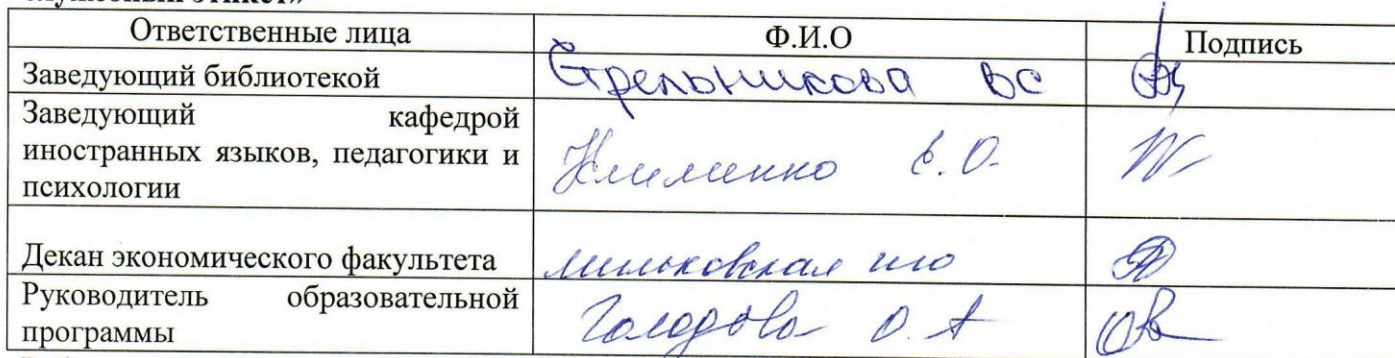 этикет»
Ответственные лица Ф.И.О Подпись
Заведующий библиотекой Стрельникова ВС
Заведующий кафедрой
иностранных языков, педагогики и
психологии
Клименко Е.О.
Декан экономического факультета
Руководитель образовательной
программы
О.А